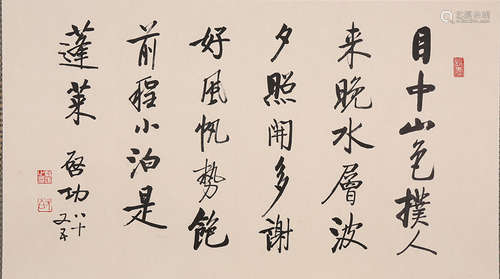 目中山色撲人
来晚水層波
夕照開多謝
好風帆勢飽
前程小泊是
蓬莱 啓功 八十又五